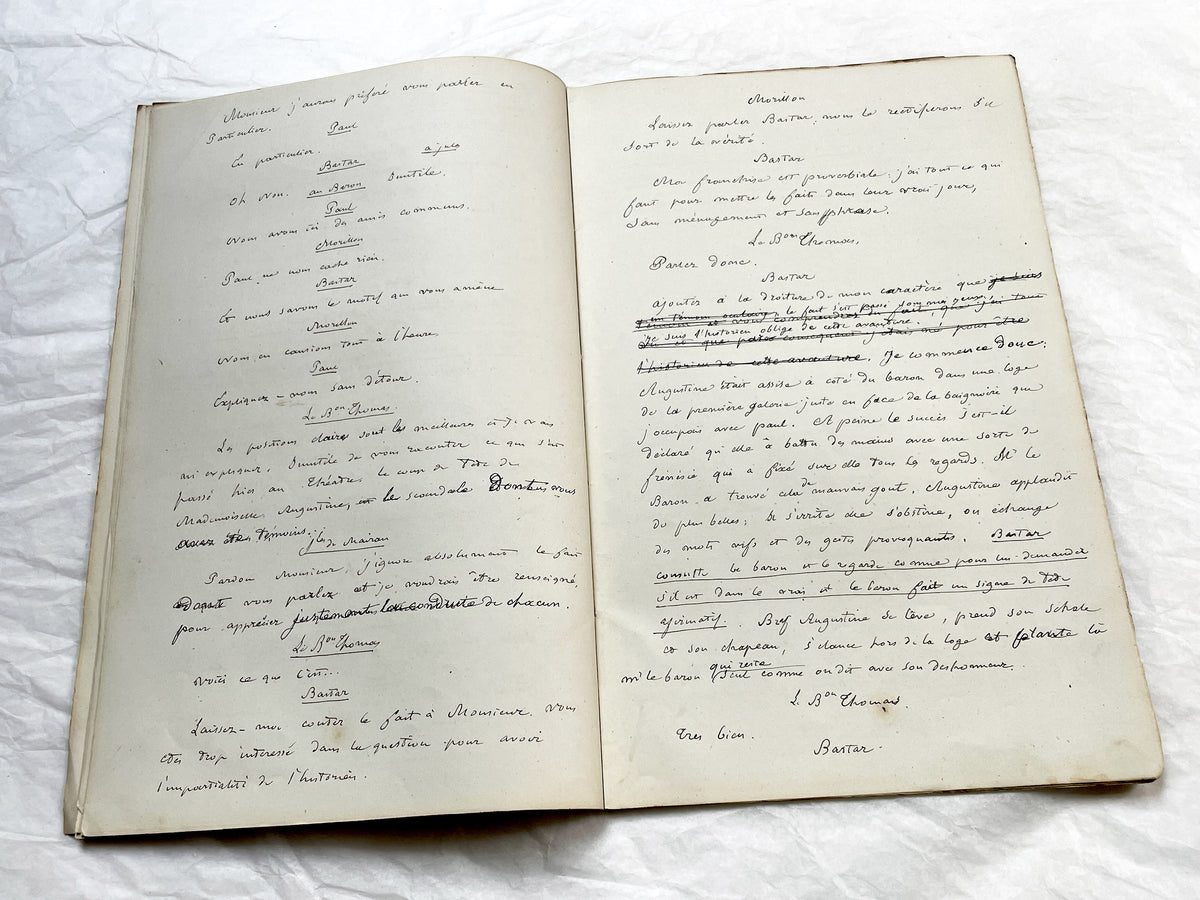 Monsieur j'aurais préféré vous parler en
Particulier.
Paul
En particulier.
Bastar
Oh non. au Baron Inutile.
Paul
Nous avons ici des amis communs.
Morillon
Paul ne nous cache rien.
Bastar
Et nous savons le motif qui vous amène
Morillon
Nous en causions tout à l'heure
Paul
Expliquez-nous sans détour.
Le Bon Thomas.
Les positions claires sont les meilleures et je vais
m'expliquer. Inutile de vous raconter ce que s'est
passé hier au théâtre le coup de Tête de
Mademoiselle Augustine, et le scandale Dont vous
avez été témoins.
de Mairan
Pardon Monsieur, j'ignore absolument le fait
Dont vous parlez et je voudrais être renseigné
pour apprécier justement la conduite de chacun.
Le Bon Thomas
Voici ce que c'est...
Bastar
Laissez-moi conter le fait à Monsieur. Vous
êtes trop intéressé dans la question pour avoir
l'impartialité de l'historien.
Morillon
Laissez parler Bastar, nous le rectifierons s'il
sort de la vérité.
Bastar
Ma franchise est proverbiale: j'ai tout ce qui
faut pour mettre les faits dans leur vrai jour,
sans ménagement et sans phrase.
Le Bon Thomas.
Parlez donc.
Bastar
Ajoutez à la droiture de mon caractère que
un témoin oculaire, le fait s'est passé sous mes yeux,
Je suis l'historien obligé de cette aventure.
né pour être
l'historien de cette aventure. Je commence donc:
Augustine était assise à coté du baron dans une loge
de la première galerie juste en face de la baignoire que
j'occupais avec paul. A peine le succès s'est-il
déclaré qu'elle à battu des mains avec une sorte de
frénésie qui a fixé sur elle tous les regards. Mr le
Baron a trouvé cela de mauvais gout, Augustine applaudit
de plus belles; il s'irrite elle s'obstine, on échange
des mots vifs et des gestes provoquants. Bastar
consulte le baron et le regarde comme pour lui demander
s'il est dans le vrai et le baron fait un signe de tete
afirmatif. Bref Augustine se lève, prend son schale
et son chapeau, s'élance hors de la loge et plante là
mr le baron qui reste seul comme on dit avec son deshonneur.
Le Bon Thomas.
Tres bien.
Bastar.